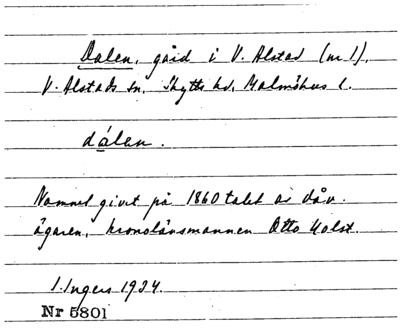 Dalen, gård i V. Alstad (nr 1),
V. Alstads sn, Skytts hd, Malmöhus l.
dálen.
Namnet givet på 1860 talet av dåv.
ägaren, kronolänsmannen Otto Holst.
I. Ingers 1934.
Nr 5801